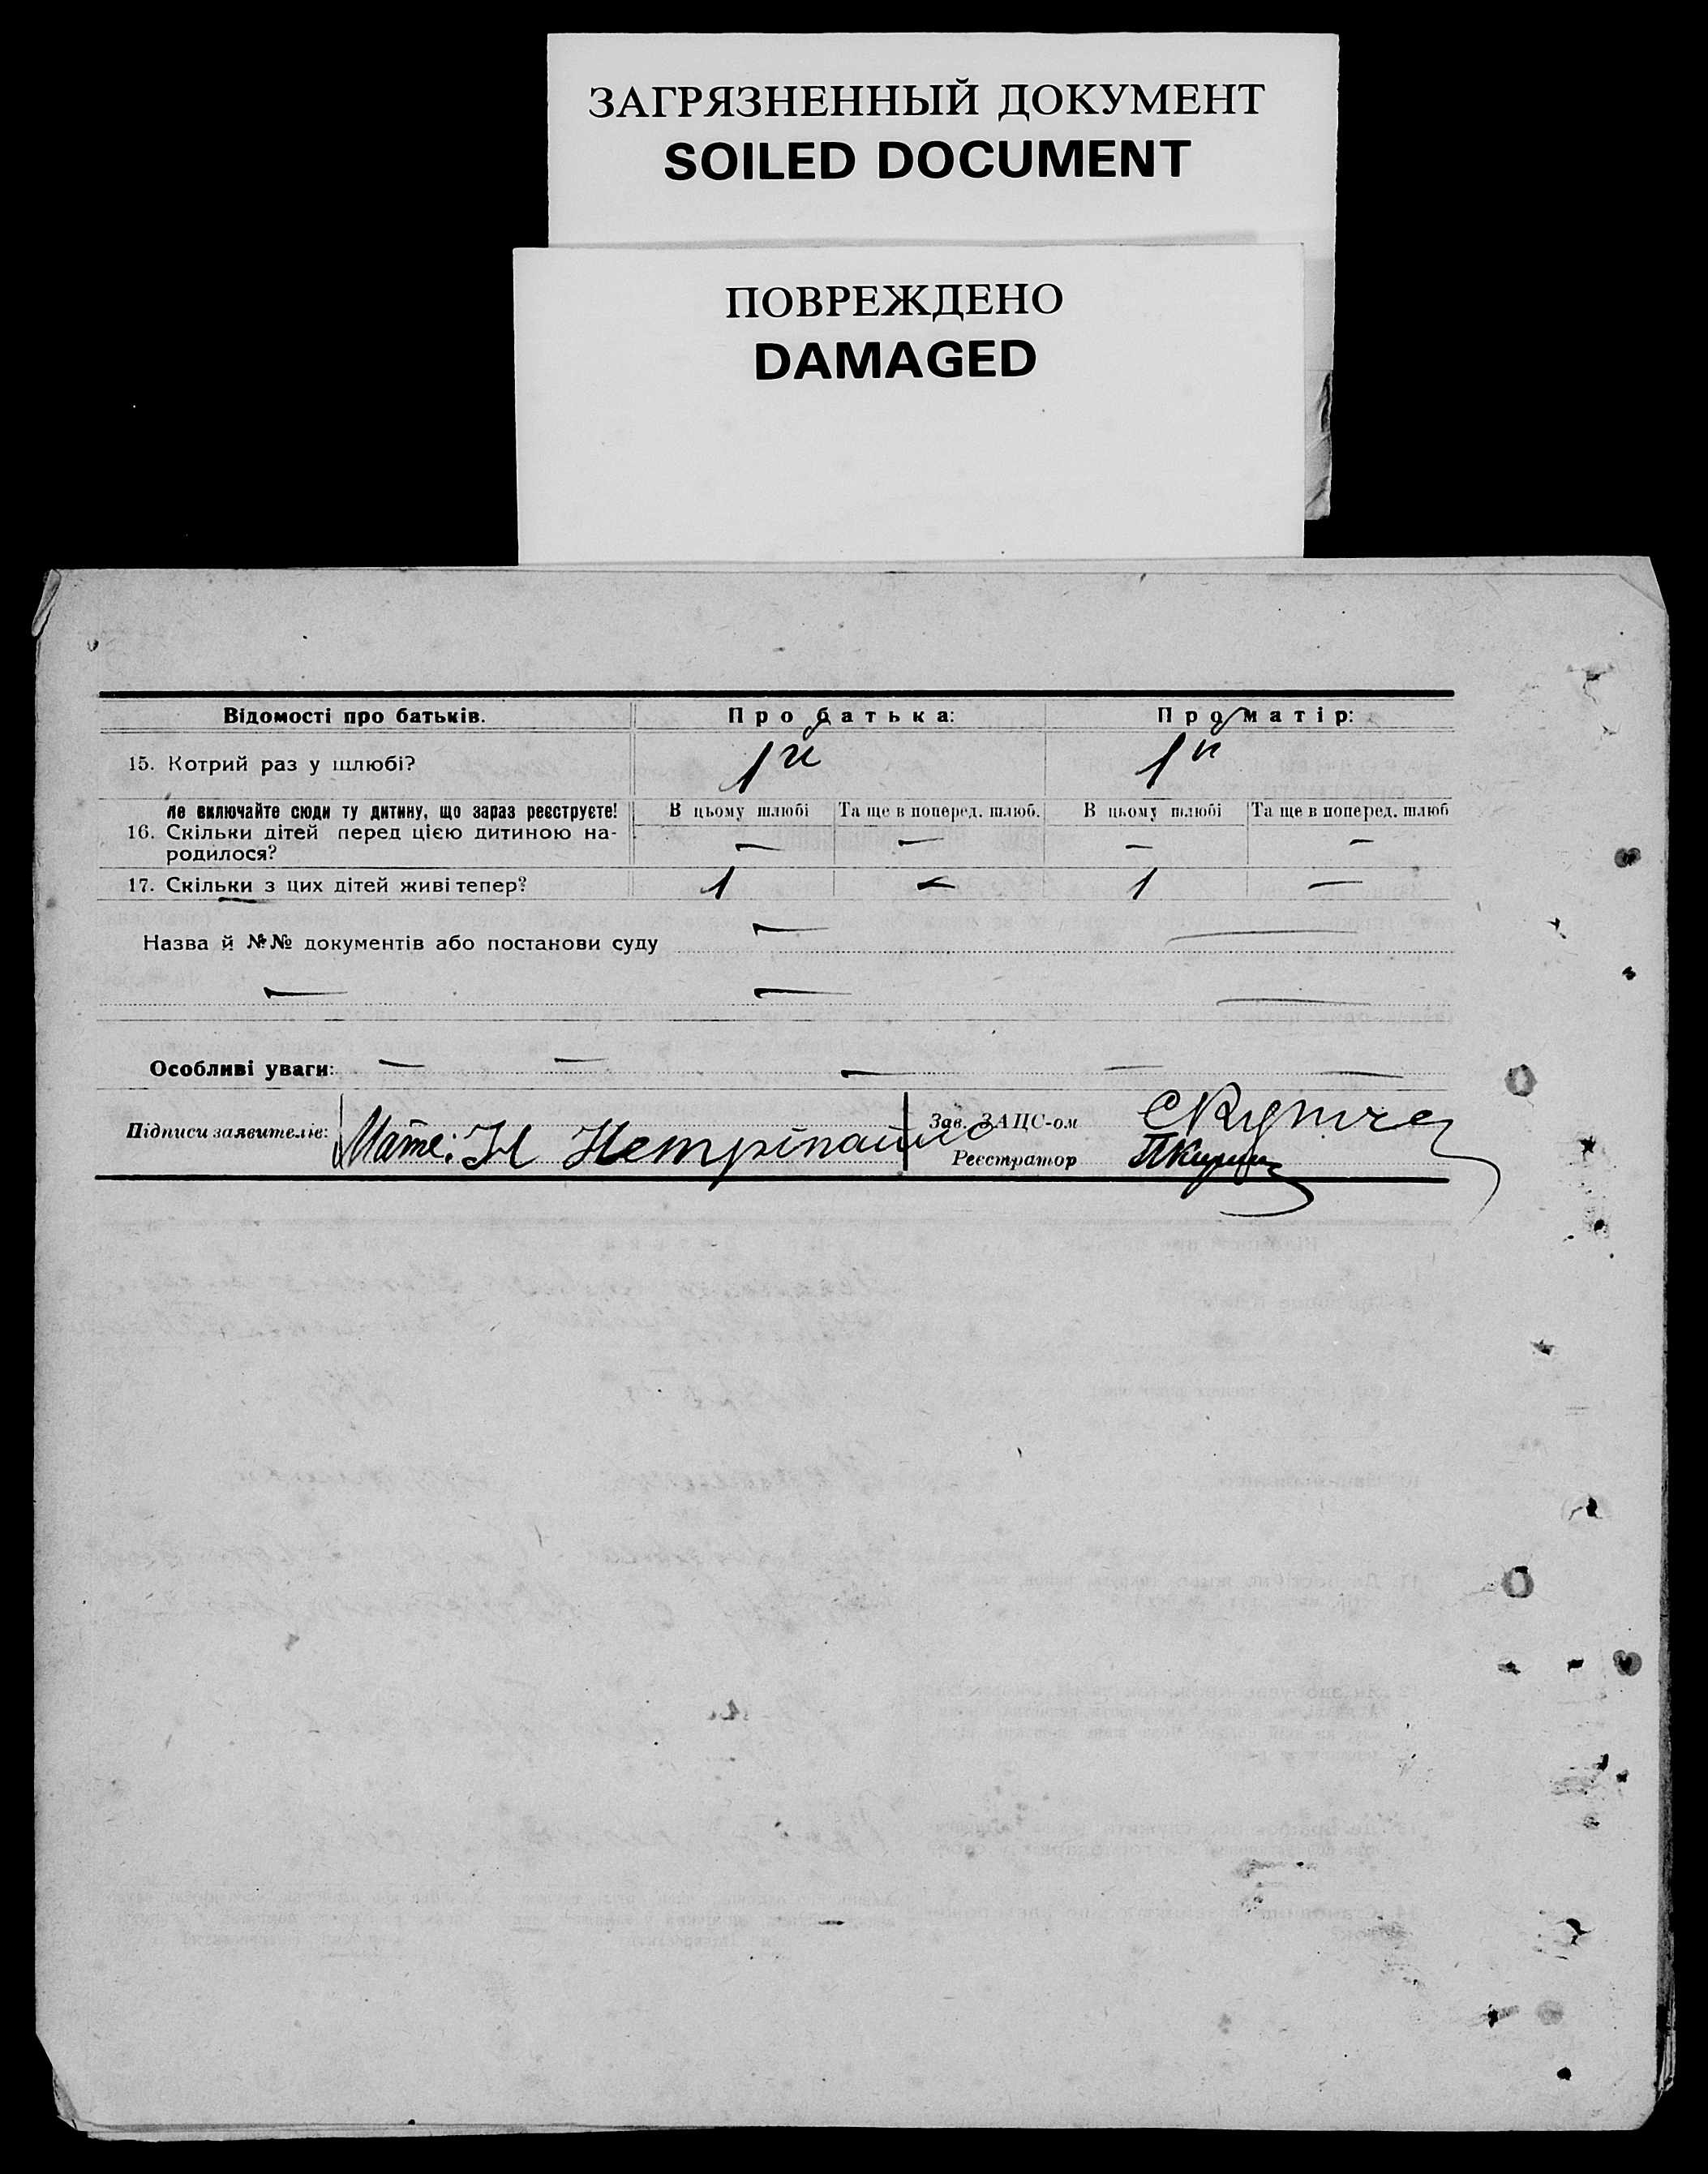 ЗАГРЯЗНЕННЫЙ ДОКУМЕНТ
SOILED DOCUMENT
ПОВРЕЖДЕНО
DAMAGED
Відомості про батьків. Про батька: Про матір:
15. Котрий раз у шлюбі? 1й 1й
Не включайте сюди ту дитину, що зараз реєструєте! В цьому шлюбі Та ще в поперед. шлюб. В цьому шлюбі Та ще в поперед. шлюб
16. Скільки дітей перед цією дитиною на-
родилося? — — — —
17. Скільки з цих дітей живі тепер? 1 — 1 —
Назва й №№ документів або постанови суду — —
— — —
Особливі уваги: — — — — —
Підписи заявителів: Мати: Н Зав. ЗАЦС-ом
Реєстратор